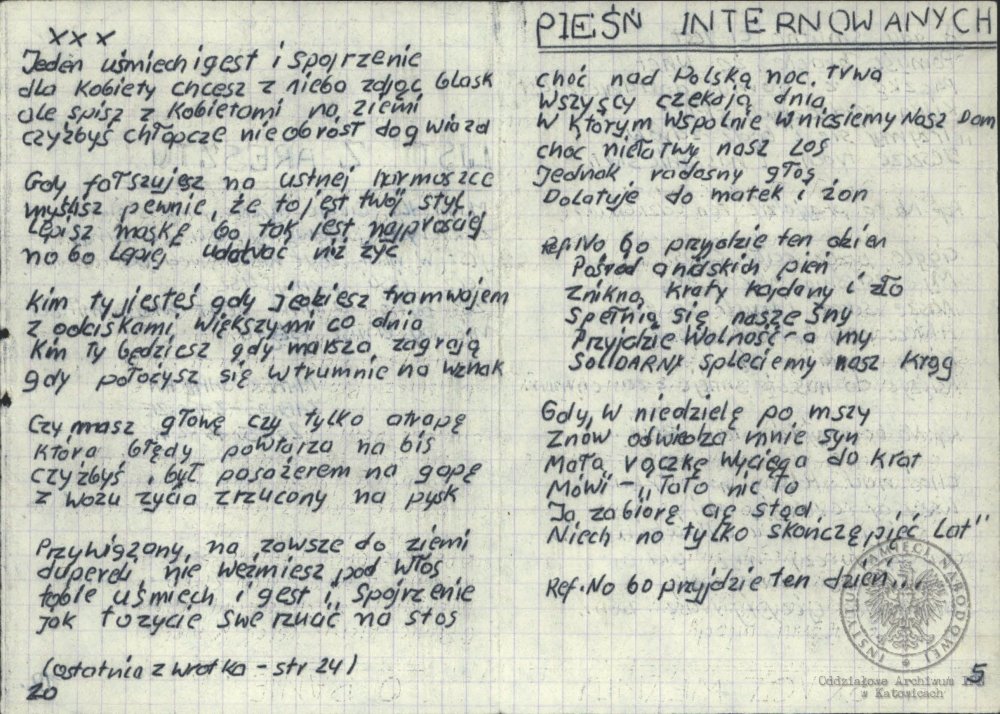 x x x
Jeden uśmiech i gest i spojrzenie
dla kobiety chcesz z nieba zdjąć blask
ale śpisz z kobietami na ziemi
czyżbyś chłopcze nie obrósł do gwiazd
Gdy fałszujesz na ustnej harmoszce
myślisz pewnie, że to jest twój styl
Lepisz maskę bo tak jest najprościej
no bo lepiej udawać niż żyć
Kim ty jesteś gdy jedziesz tramwajem
z odciskami większymi co dnia
Kim ty będziesz gdy marsza zagrają
gdy położysz się w trumnie na wznak
Czy masz głowę czy tylko atrapę
która błędy powtarza na bis
czyżbyś był pasażerem na gapę
z wozu życia zrzucony na pysk
Przywiązany na zawsze do ziemi
dupereli nie weźmiesz pod włos
tobie uśmiech i gest i spojrzenie
jak to życie swe rzucić na stos
(ostatnia zwrotka - str 24)
20
PIEŚŃ INTERNOWANYCH
choć nad Polską noc trwa
Wszyscy czekają dnia
W którym wspólnie wniesiemy Nasz Dom
choć niełatwy nasz los
Jednak radosny głos
Dolatuje do matek i żon
Ref. No bo przyjdzie ten dzień
Pośród anielskich pień
Znikną kraty kajdany i zło
Spełnią się nasze sny
Przyjdzie Wolność - a my
SOLIDARNI spleciemy nasz krąg
Gdy, w niedzielę po mszy
Znów odwiedza mnie syn
Małą rączkę wyciąga do krat
Mówi - "Tato nic to
Ja zabiorę cię stąd
Niech no tylko skończę pięć lat"
Ref. No bo przyjdzie ten dzień...
INSTYTUT PAMIĘCI NARODOWEJ
5
Oddziałowe Archiwum
w Katowicach